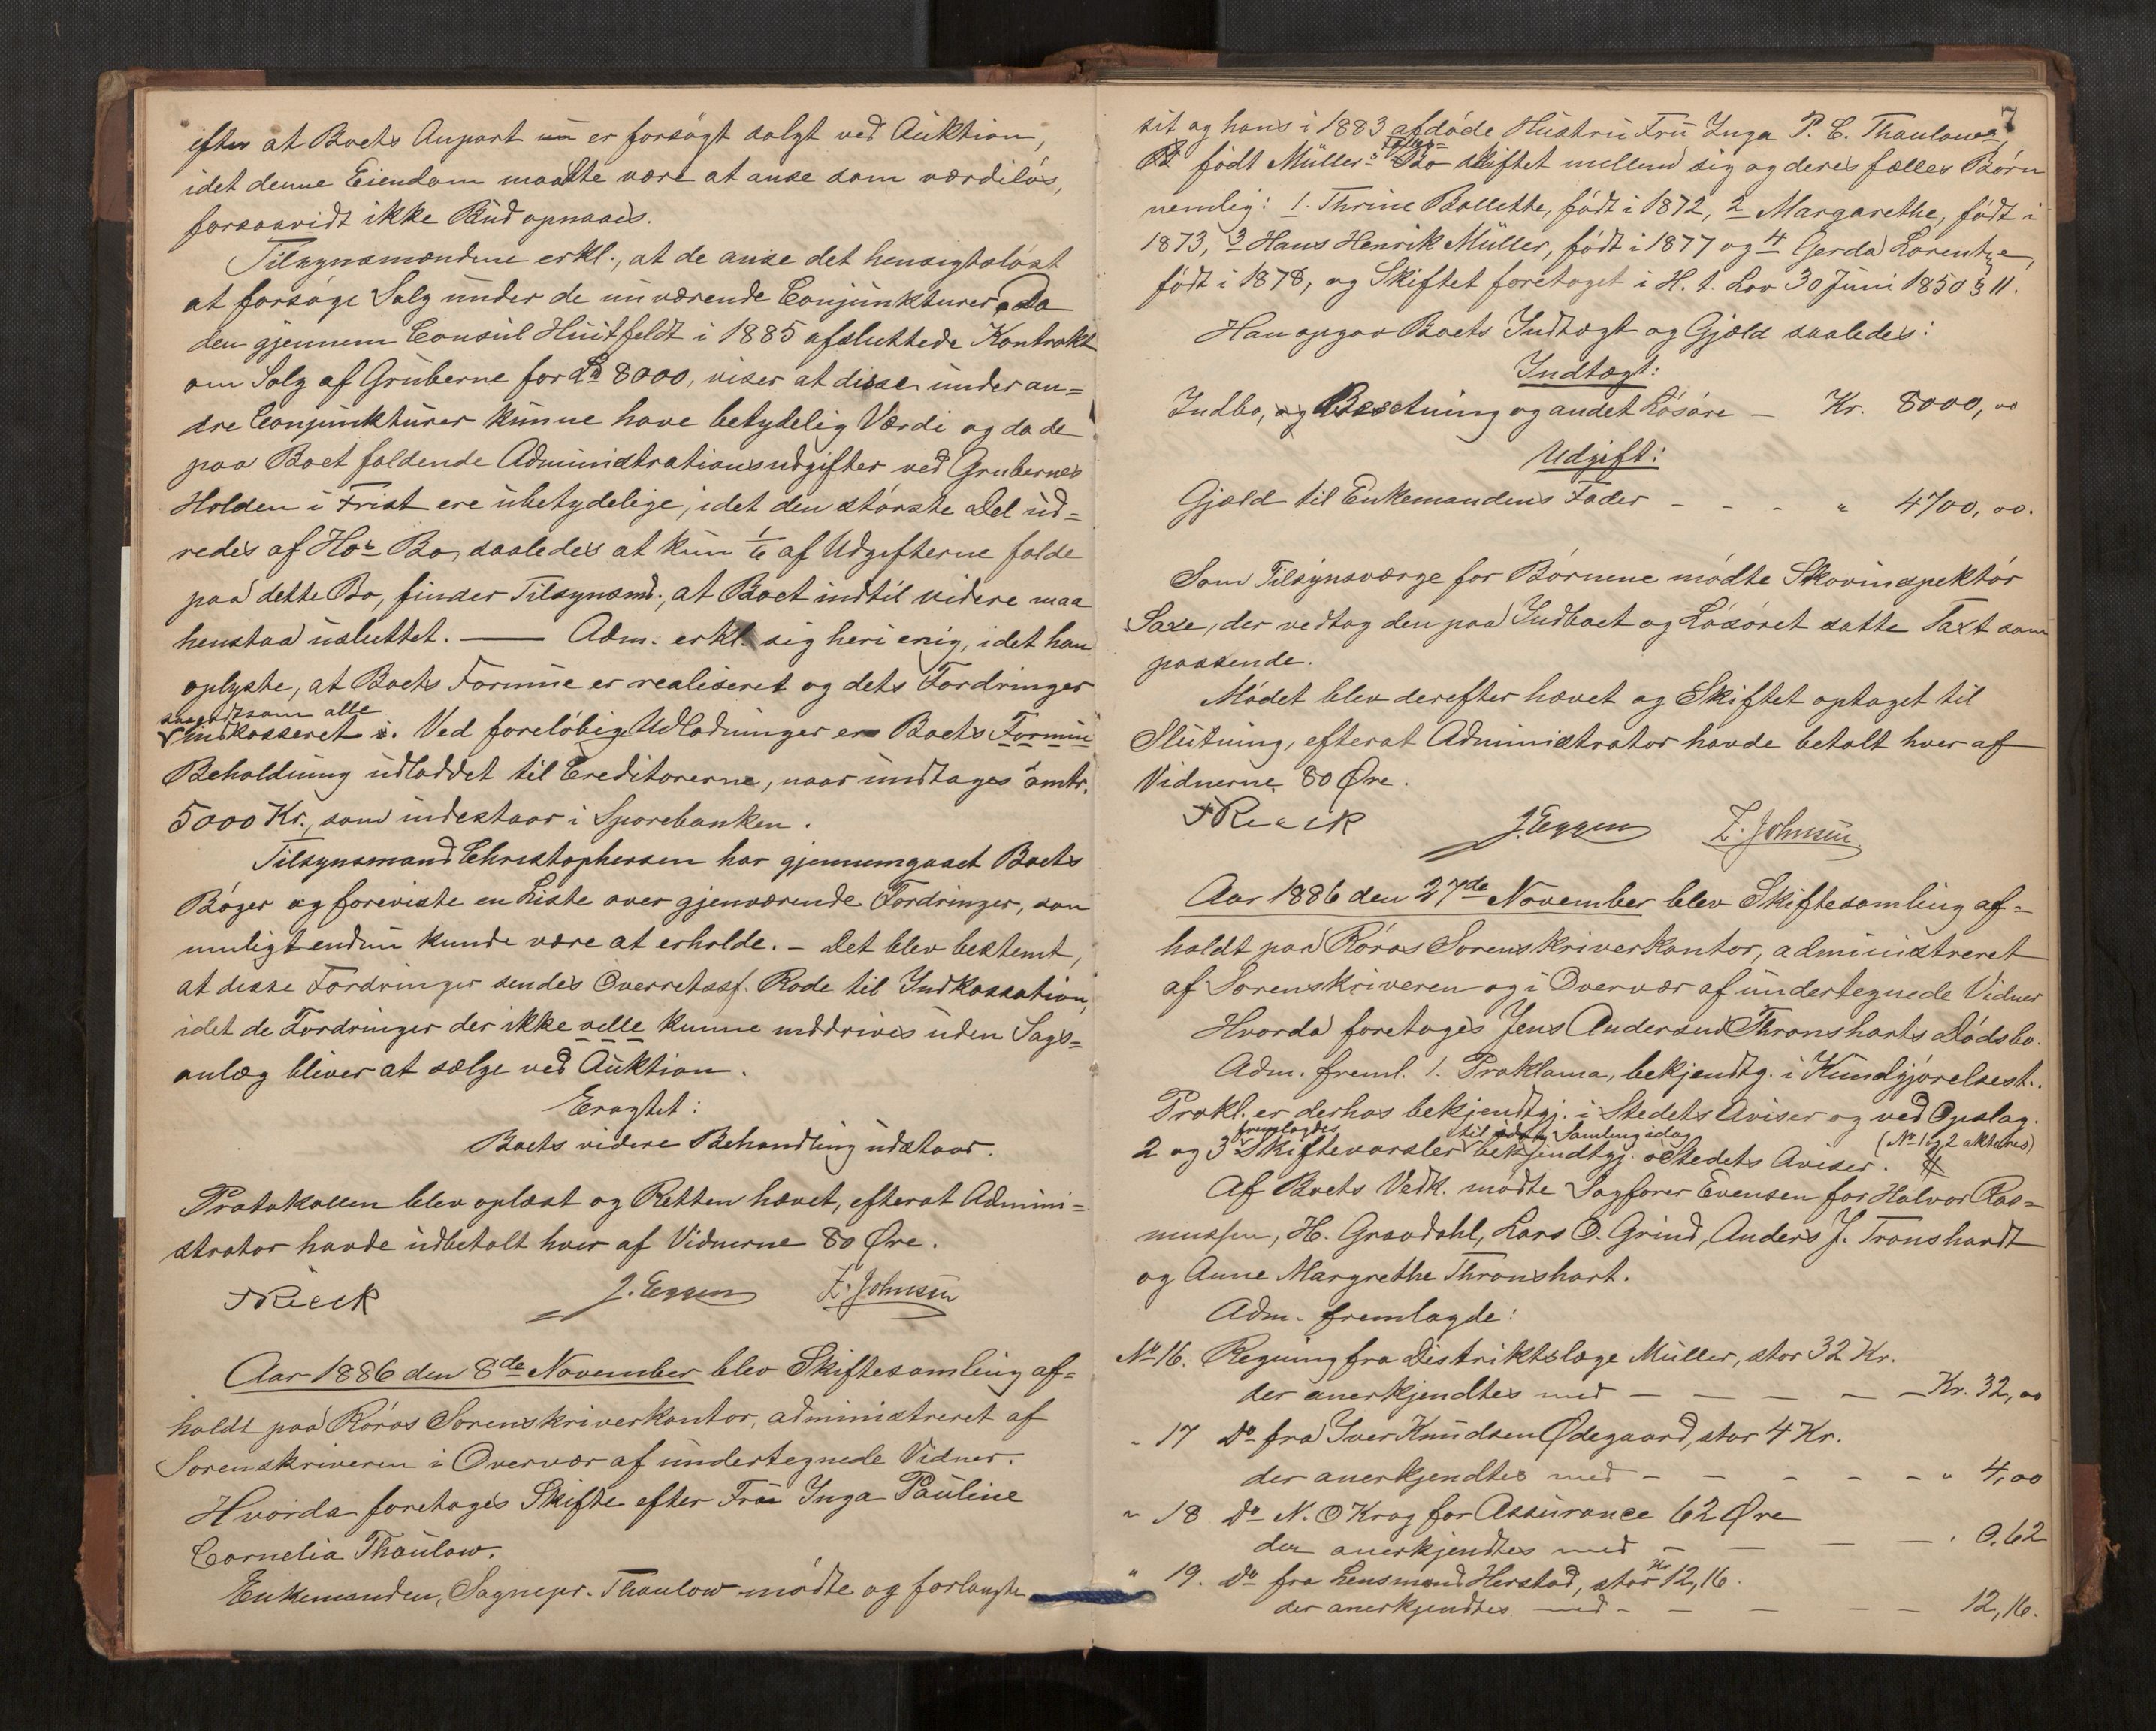 efter at Boets Anpart er forsøgt solgt ved Auktion,
idet denne Eiendom maatte være at anse som værdiløs,
forsaavidt ikke Bud opnaaes.
Tilsynsmændene erkl., at de anse det hensigtsløst
at forsøge Salg under de nuværende Conjunkturer, da
den gjennem Consul Huitfeldt i 1885 afsluttede Kontrakt
om Salg af Gruberne for 8000, viser at disse under an=
dre Conjunkturer kunne have betydelig Værdi og da de
paa Boet faldende Administrationsudgifter ved Grubernes
Holden i Frist ere ubetydelige, idet den største Del ud=
redes af Bo, saaledes at kun 1/6 af Udgifterne falde
paa dette Bo, finder Tilsynsmd., at Boet indtil videre maa
henstaa usluttet. — Adm. erkl. sig heri enig, idet han
oplyste, at Boets Formue er realiseret og dets Fordringer
saagodtsom alle
indkasseret. Ved foreløbige Udlodninger er Boets Formue
Beholdning udloddet til Creditorerne, naar undtages omtr.
5000 Kr., som indestaar i Sparebanken.
Tilsynsmand Christophersen har gjennemgaaet Boets
Bøger og foreviste en Liste over gjenværende Fordringer, som
muligt endnu kunde være at erholde. - Det blev bestemt,
at disse Fordringer sendes Overretssf. Rode til Indkassation,
idet de Fordringer der ikke velle kunne inddrives uden Sags=
anlæg bliver at sælge ved Auktion.
Eragtet:
Boets videre Behandling udstaar.
Protokollen blev oplæst og Retten hævet, efterat Admini=
strator havde udbetalt hver af Vidnerne 80 Øre.
J. Eggen Z. Johnsen
Aar 1886 den 8de November blev Skiftesamling af=
holdt paa Røros Sorenskriverkontor, administreret af
Sorenskriveren i Overvær af undertegnede Vidner.
Hvorda foretages Skifte efter Fru Inga Pauline
Cornelia Thaulow.
Enkemanden, Sognepr. Thaulow mødte og forlangte
7
sit og hans i 1883 afdøde Hustru Fru Inga P. C. Thaulows,
Fælles=
født Müllers Bo skiftet mellem sig og deres fælles Børn
nemlig: 1. Thrine Bollette, født i 1872, 2 Margarethe, født i
1873, 3 Hans Henrik Müller, født i 1877 og 4 Gerda Lorentze,
født i 1878, og Skiftet foretaget i H. t. Lov 30 Juni 1850 § 11.
Han opgav Boets Indtægt og Gjæld saaledes:
Indtægt:
Indbo, og Besetning og andet Løsøre — Kr. 8000,00
Udgift:
Gjæld til Enkemandens Fader - - - " 4700,00.
Som Tilsynsværge for Børnene mødte Skovinspektør
Saxe, der vedtog den paa Indboet og Løsøret satte Taxt som
passende.
Mødet blev derefter hævet og Skiftet optaget til
Slutning, efterat Administrator havde betalt hver af
Vidnerne 80 Øre.
J. Eggen Z. Johnsen
Aar 1886 den 27de November blev Skiftesamling af=
holdt paa Røros Sorenskriverkontor, administreret
af Sorenskriveren og i Overvær af undertegnede Vidner
Hvorda foretages Jens Andersen Thronsharts Dødsbo.
Adm. freml. 1. Proklama, bekjendtg. i Kundgjørelsest..
Prokl. er derhos bekjendtgj. i Stedets Aviser og ved Opslag.
fremlagdes til Samling idag (No 1 og 2 aktenes)
2 og 3 Skiftevarsler bekjendtgj. i Stedets Aviser.
Af Boets Vedk. mødte Sagfører Evensen for Halvor Ras=
mussen, H. Graadahl, Lars O. Grind, Anders J. Tronshardt
og Anne Margrethe Thronshart.
Adm. fremlagde:
No 16. Regning fra Distriktslæge Müller, stor 32 Kr.
der anerkjendtes med — — — — — Kr. 32,00
" 17 Do fra Iver Knudsen Ødegaard, stor 4 Kr.
der anerkjendtes med - - - - - " 4,00
" 18 Do N. O Krog for Assurance 62 Øre
der anerkjendtes med - — — — " 0,62
" 19. Do fra Lensmand Herstad, stor Kr 12,16.
der anerkjendtes med - - — — — 12,16.